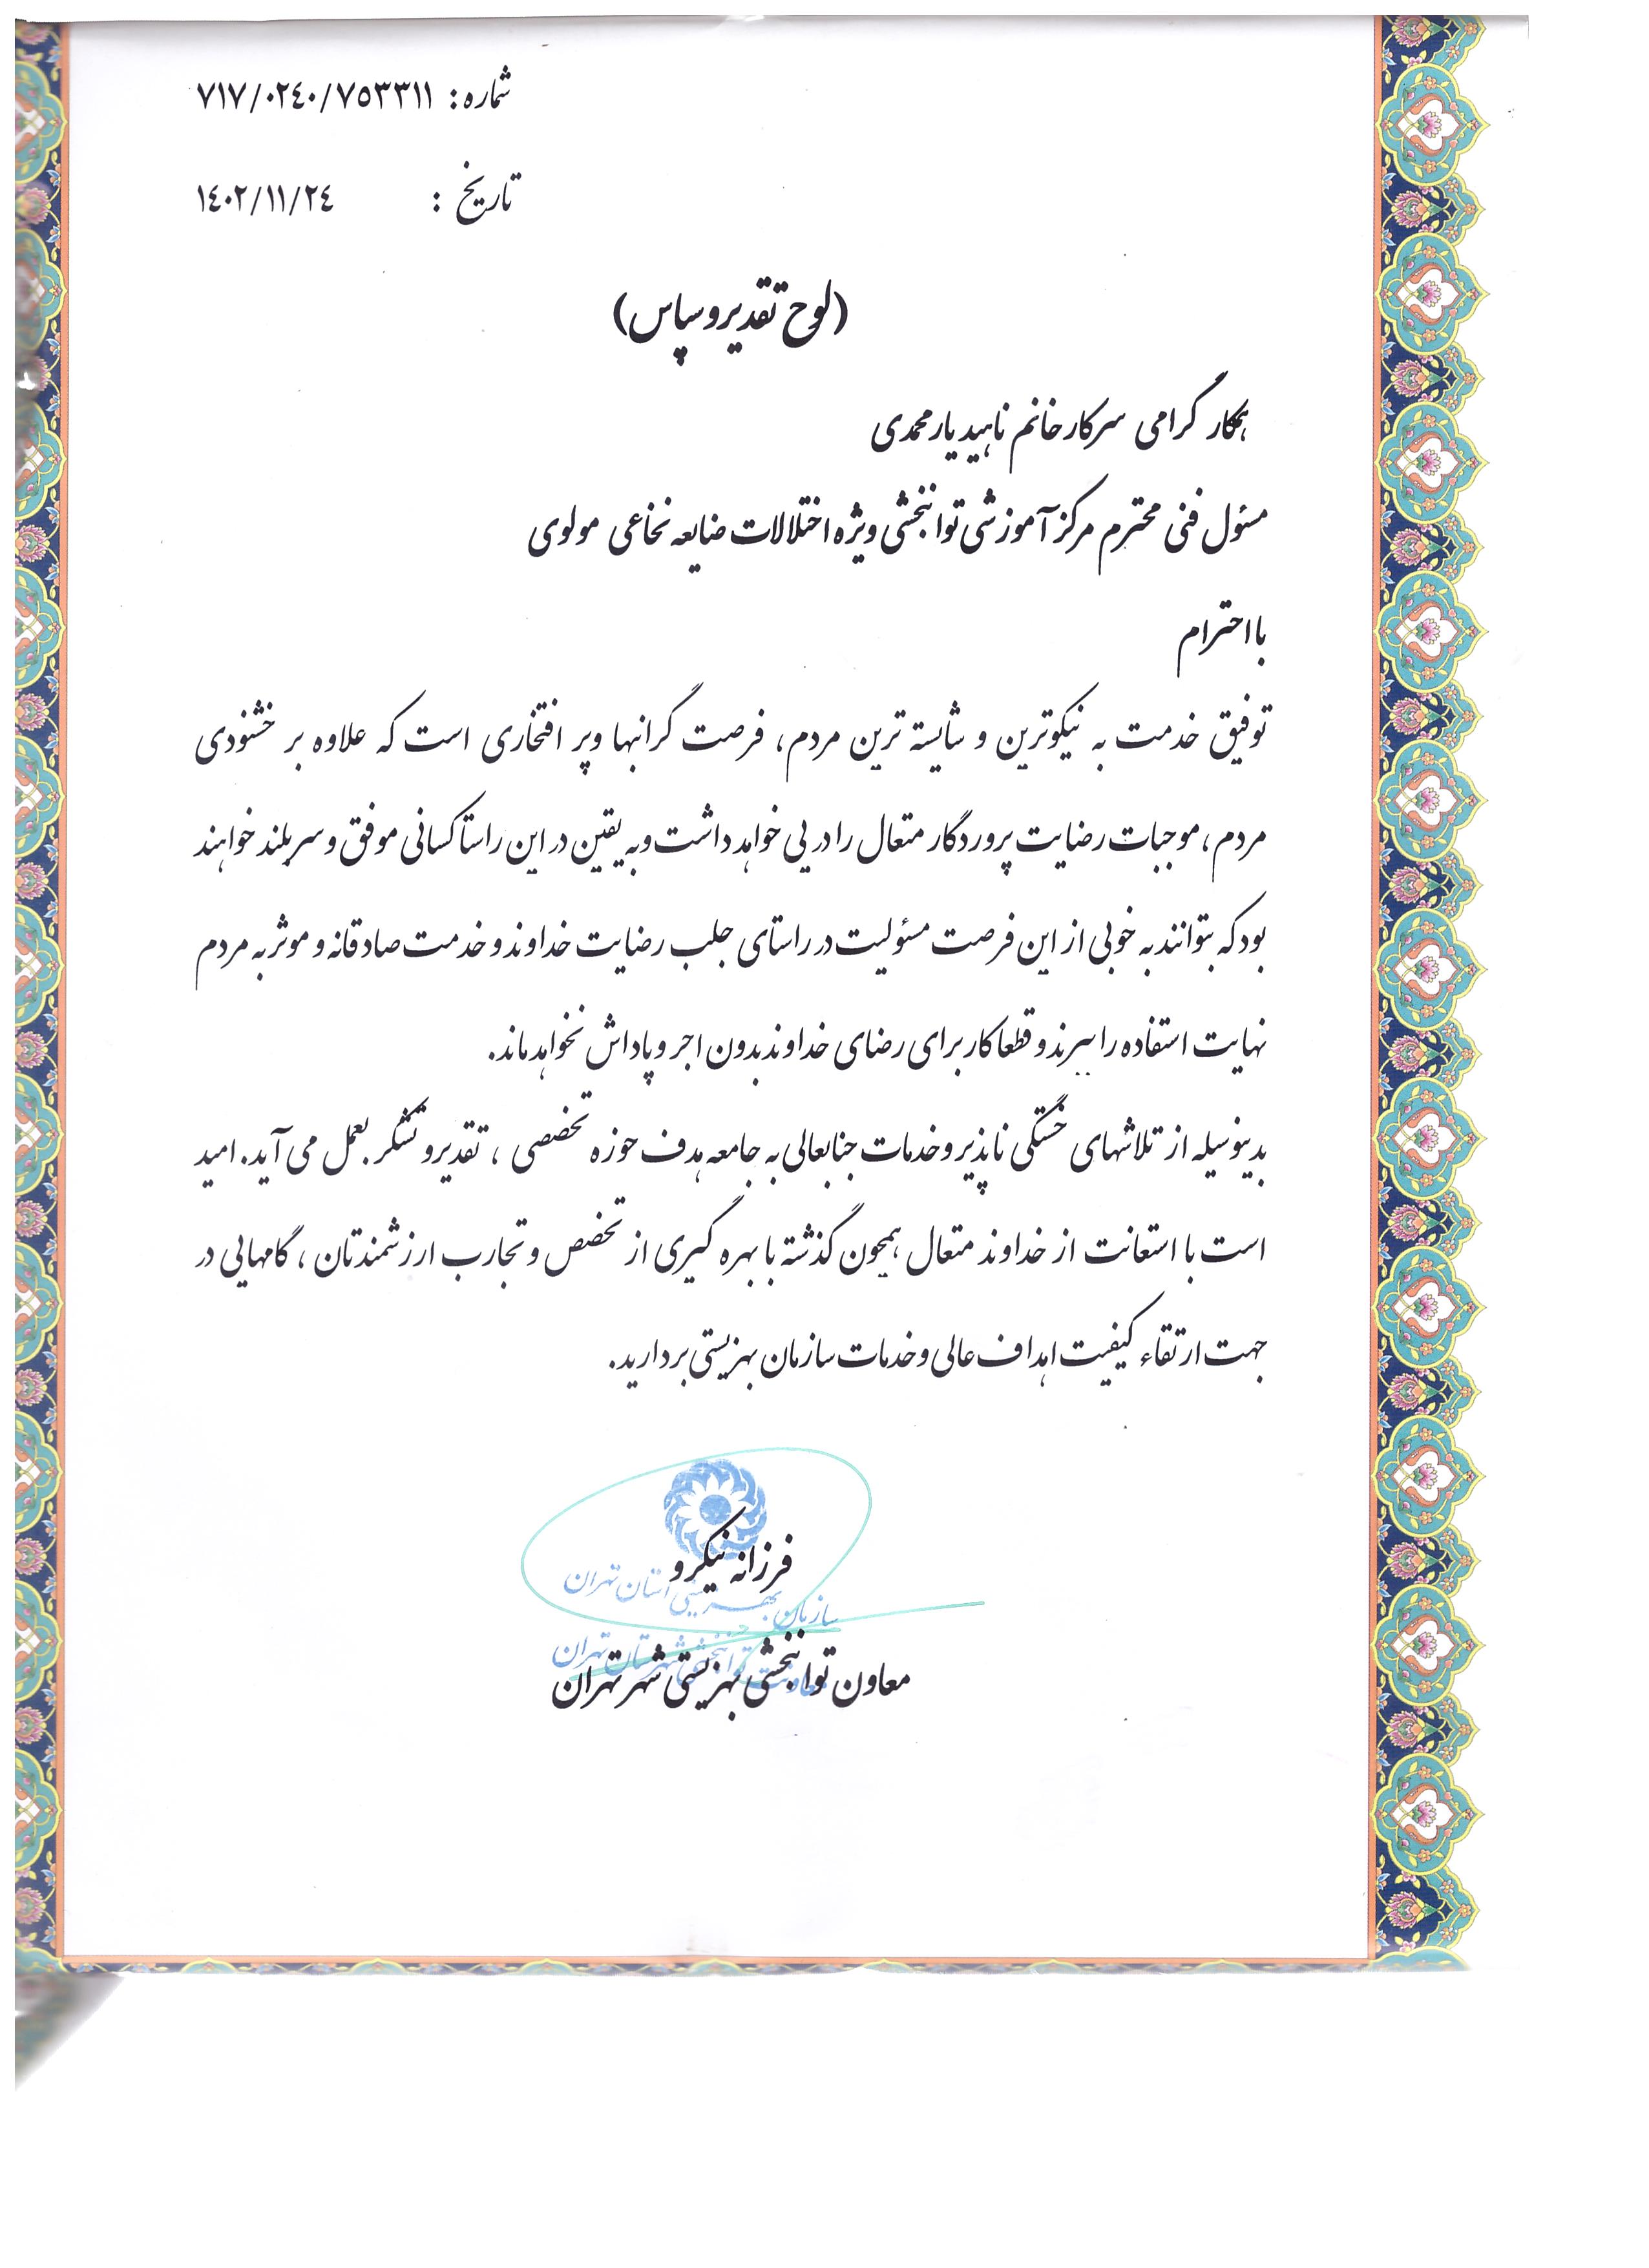 شماره: ۷۱۷/۰۲٤۰/۷۵۳۳۱۱
تاریخ : ۱٤۰۲/۱۱/۲٤
(لوح تقدیر و سپاس)
همکار گرامی سرکار خانم ناهید یارمحمدی
مسئول فنی محترم مرکز آموزشی توانبخشی ویژه اختلالات ضایعه نخاعی مولوی
با احترام
توفیق خدمت به نیکوترین و شایسته ترین مردم، فرصت گرانبها وپر افتخاری است که علاوه بر خشنودی
مردم، موجبات رضایت پروردگار متعال را در پی خواهد داشت و به یقین در این راستا کسانی موفق و سربلند خواهند
بود که بتوانند به خوبی از این فرصت مسئولیت در راستای جلب رضایت خداوند و خدمت صادقانه و موثر به مردم
نهایت استفاده را ببرند و قطعا کار برای رضای خداوند بدون اجر و پاداش نخواهد ماند.
بدینوسیله از تلاشهای خستگی ناپذیر و خدمات جنابعالی به جامعه هدف حوزه تخصصی ، تقدیر و تشکر بعمل می آید. امید
است با استعانت از خداوند متعال همچون گذشته با بهره گیری از تخصص و تجارب ارزشمندتان ، گامهایی در
جهت ارتقاء کیفیت اهداف عالی و خدمات سازمان بهزیستی بردارید.
فرزانه نیکرو
سازمان بهزیستی استان تهران
معاونت توانبخشی شهرستان تهران
معاون توانبخشی بهزیستی شهر تهران